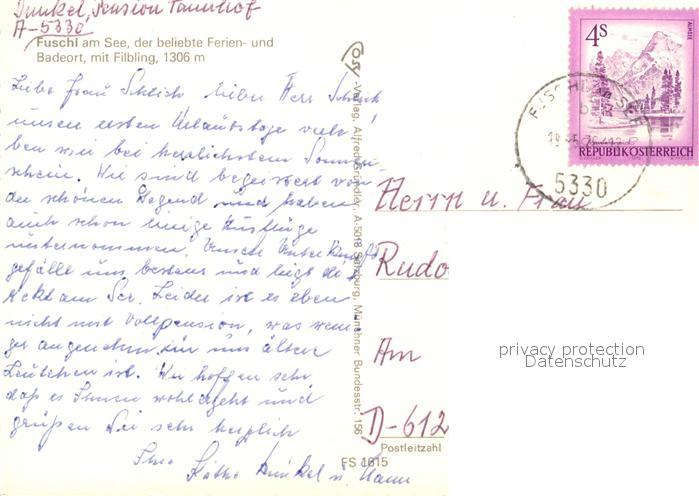 Dunkel, Pension Tannhof
A-5330
Fuschl am See, der beliebte Ferien- und
Badeort, mit Filbling, 1306 m
Liebe Frau Schlich, lieber Herr Schlich
unsere ersten Urlaubstage verle-
ben wir bei herrlichstem Sonnen-
schein. Wir sind begeistert von
der schönen Gegend und haben
auch schon einige Ausflüge
unternommen. Unsere Unterkunft
gefällt uns bestens und liegt di-
rekt am See. Leider ist es eben
nicht mit Vollpension, was weni-
ger angenehm für uns ältere
Leutchen ist. Wir hoffen sehr
daß es Ihnen wohl ergeht und
grüßen Sie sehr herzlich
Ihre
Käthe Dunkel u. Mann
Verlag Alfred Gründler, A-5018 Salzburg, Münchner Bundesstr. 156
FS 1615
4S
ALMSEE
REPUBLIK ÖSTERREICH
FUSCHL AM SEE
5330
Herrn u. Frau
Rudo
Am
D-612
Postleitzahl
privacy protection
Datenschutz